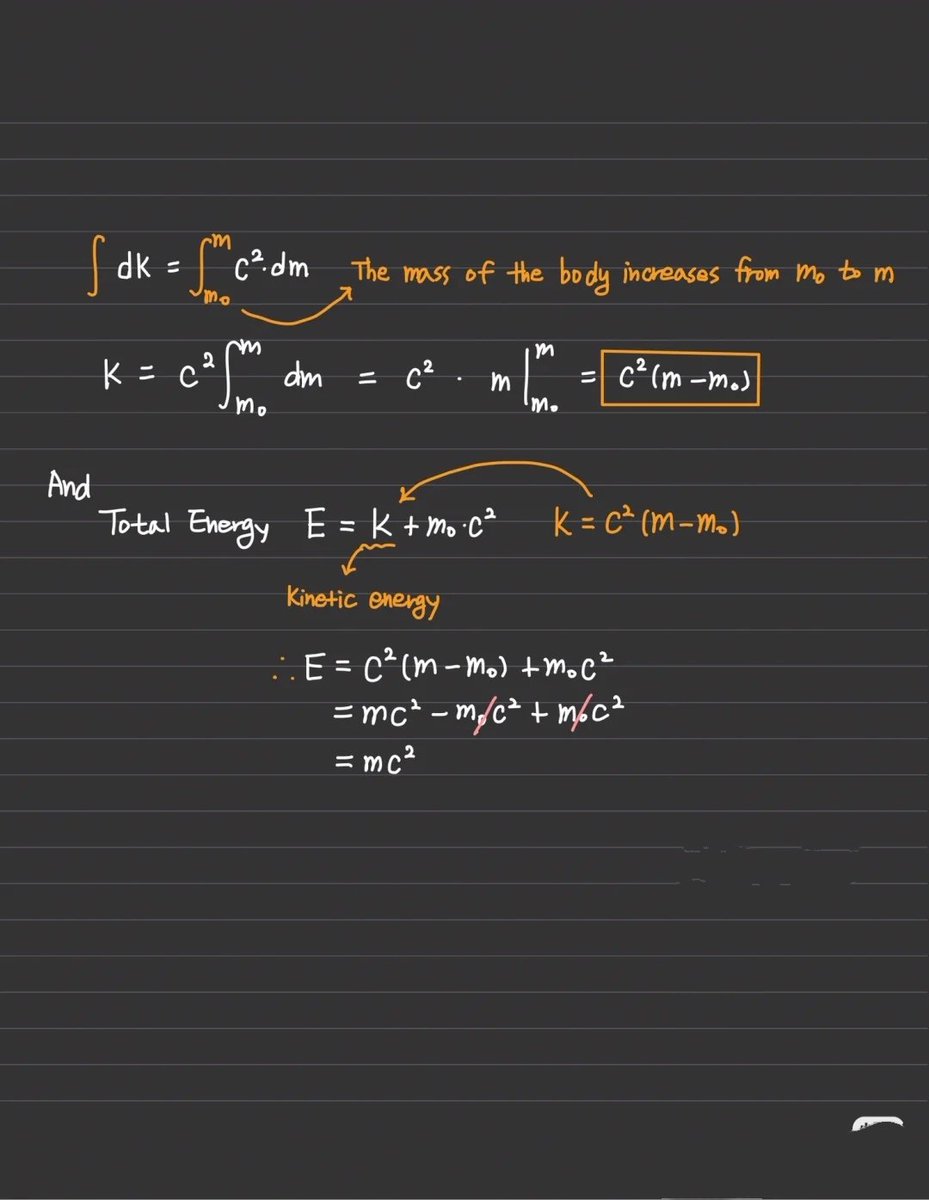 ∫ dk = ∫_{m₀}^{m} c²·dm The mass of the body increases from m₀ to m
K = c² ∫_{m₀}^{m} dm = c² · m |_{m₀}^{m} = c²(m − m₀)
And
Total Energy E = K + m₀·c² K = c²(m − m₀)
Kinetic energy
∴ E = c²(m − m₀) + m₀c²
= mc² − m₀c² + m₀c²
= mc²